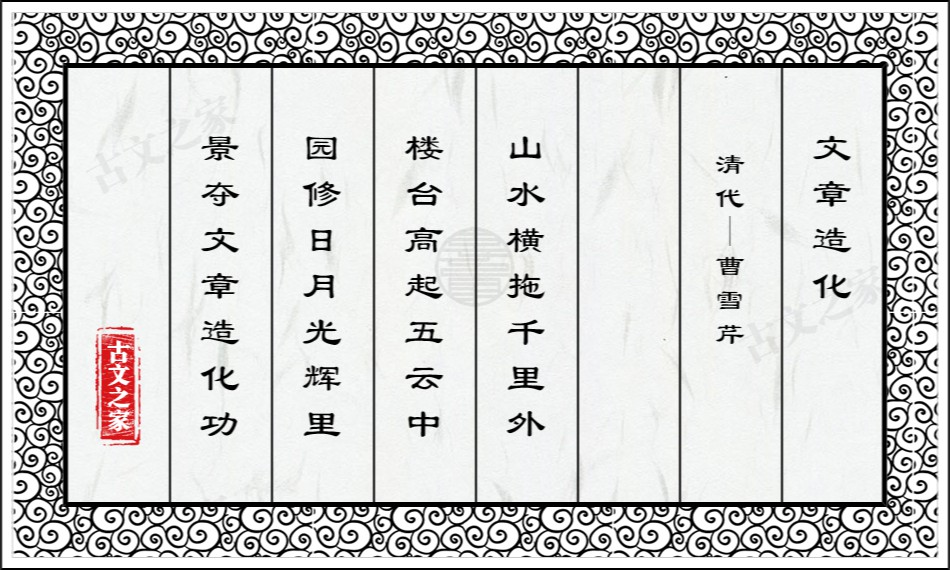 文章造化
清代—曹雪芹
山水横拖千里外
楼台高起五云中
园修日月光辉里
景夺文章造化功
古文之家
古文之家
古文之家